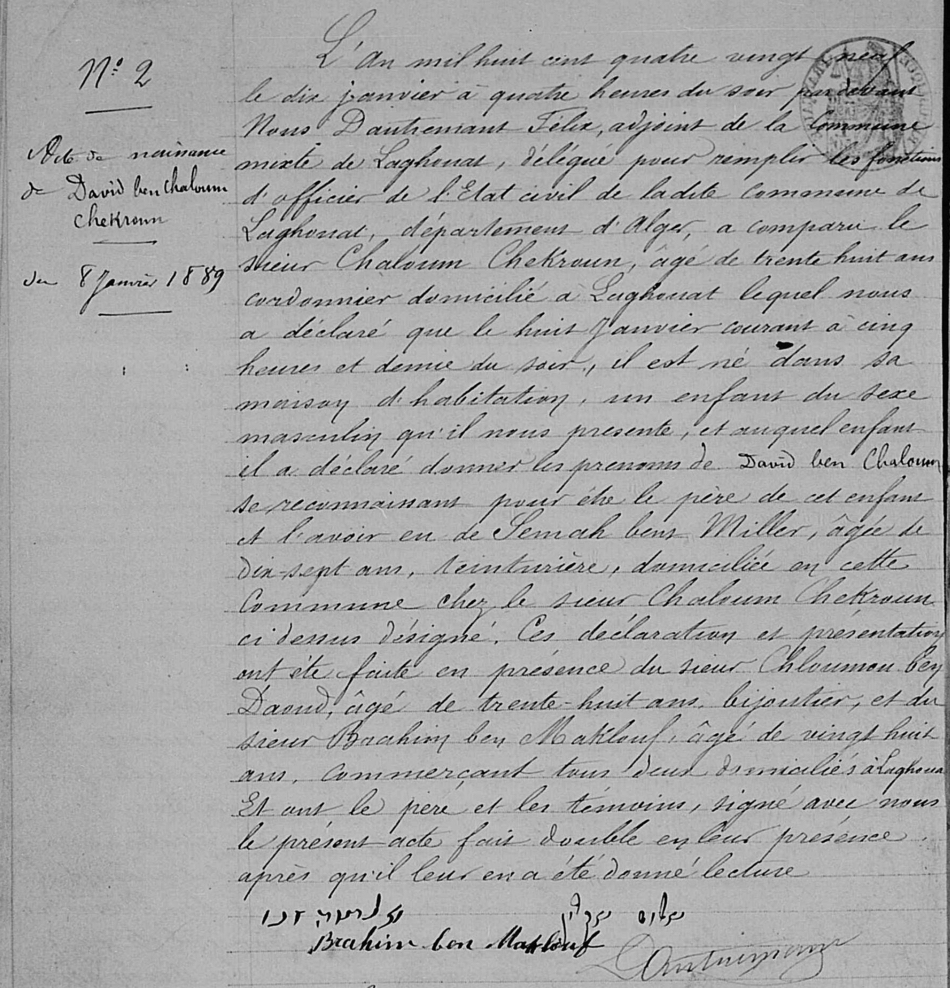 N° 2
Acte de naissance
de David ben Chaloum
Chekroun
du 8 Janvier 1889
L'An mil huit cent quatre vingt neuf
le dix janvier à quatre heures du soir pardevant
Nous Dantremant Félix, adjoint de la Commune
mixte de Laghouat, délégué pour remplir les fonctions
d'officier de l'Etat civil de ladite commune de
Laghouat, département d'Alger, a comparu le
sieur Chaloum Chekroun, âgé de trente huit ans
cordonnier domicilié à Laghouat lequel nous
a déclaré que le huit Janvier courant à cinq
heures et demie du soir, il est né dans sa
maison d'habitation, un enfant du sexe
masculin qu'il nous presente, et auquel enfant
il a déclaré donner les prenoms de David ben Chaloum
se reconnaissant pour être le père de cet enfant
et l'avoir eu de Semah bent Miller, âgée de
dix-sept ans, teinturière, domiciliée en cette
Commune chez le sieur Chaloum Chekroun
ci dessus désigné. Ces déclaration et présentation
ont été faite en présence du sieur Chloumou ben
Daoud, âgé de trente-huit ans, bijoutier, et du
sieur Brahim ben Maklouf, âgé de vingt huit
ans, commerçant tous deux domiciliés à Laghouat
Et ont le père et les témoins, signé avec nous
le présent acte fait double en leur présence
après qu'il leur en a été donné lecture
Brahim ben Maklouf